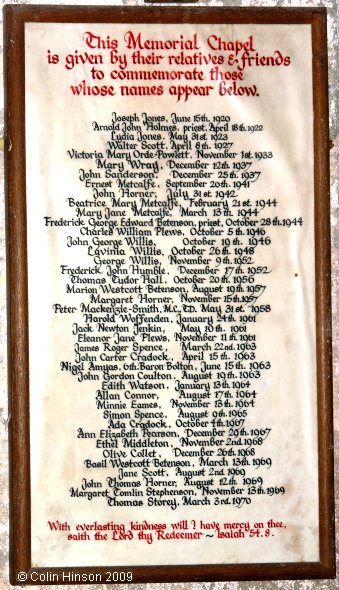 This Memorial Chapel
is given by their relatives & friends
to commemorate those
whose names appear below.
Joseph Jones, June 15th. 1920
Arnold John Holmes, priest, April 18th. 1922
Lydia Jones, May 31st. 1923
Walter Scott, April 6th. 1927
Victoria Mary Orde-Powlett, November 1st. 1933
Mary Wray, December 12th. 1937
John Sanderson, December 25th. 1937
Ernest Metcalfe, September 20th. 1941
John Horner, July 31st. 1942
Beatrice Mary Metcalfe, February 21st. 1944
Mary Jane Metcalfe, March 13th. 1944
Frederick George Edward Betenson, priest, October 28th. 1944
Charles William Plews, October 5th. 1946
John George Willis, October 19th. 1946
Lavinia Willis, October 26th. 1948
George Willis, November 9th. 1952
Frederick John Humble, December 17th. 1952
Thomas Tudor Hall, October 20th. 1956
Marion Westcott Betenson, August 19th. 1957
Margaret Horner, November 15th. 1957
Peter Mackenzie-Smith, M.C., T.D. May 31st. 1958
Harold Woffenden, January 24th. 1961
Jack Newton Jenkin, May 10th. 1961
Eleanor Jane Plews, November 11th. 1961
James Roger Spence, March 22nd. 1963
John Carter Cradock, April 15th. 1963
Nigel Amyas, 6th. Baron Bolton, June 15th. 1963
John Gordon Coulton, August 19th. 1963
Edith Watson, January 13th. 1964
Allan Connor, August 17th. 1964
Minnie Eames, November 13th. 1964
Simon Spence, August 9th. 1965
Ada Cradock, October 4th. 1967
Ann Elizabeth Pearson, December 29th. 1967
Ethel Middleton, November 2nd. 1968
Olive Collet, December 26th. 1968
Basil Westcott Betenson, March 13th. 1969
Jane Scott, August 2nd. 1969
John Thomas Horner, August 12th. 1969
Margaret Tomlin Stephenson, November 13th. 1969
Thomas Storey, March 3rd. 1970
With everlasting kindness will I have mercy on thee,
saith the Lord thy Redeemer ~ Isaiah 54.8.
© Colin Hinson 2009